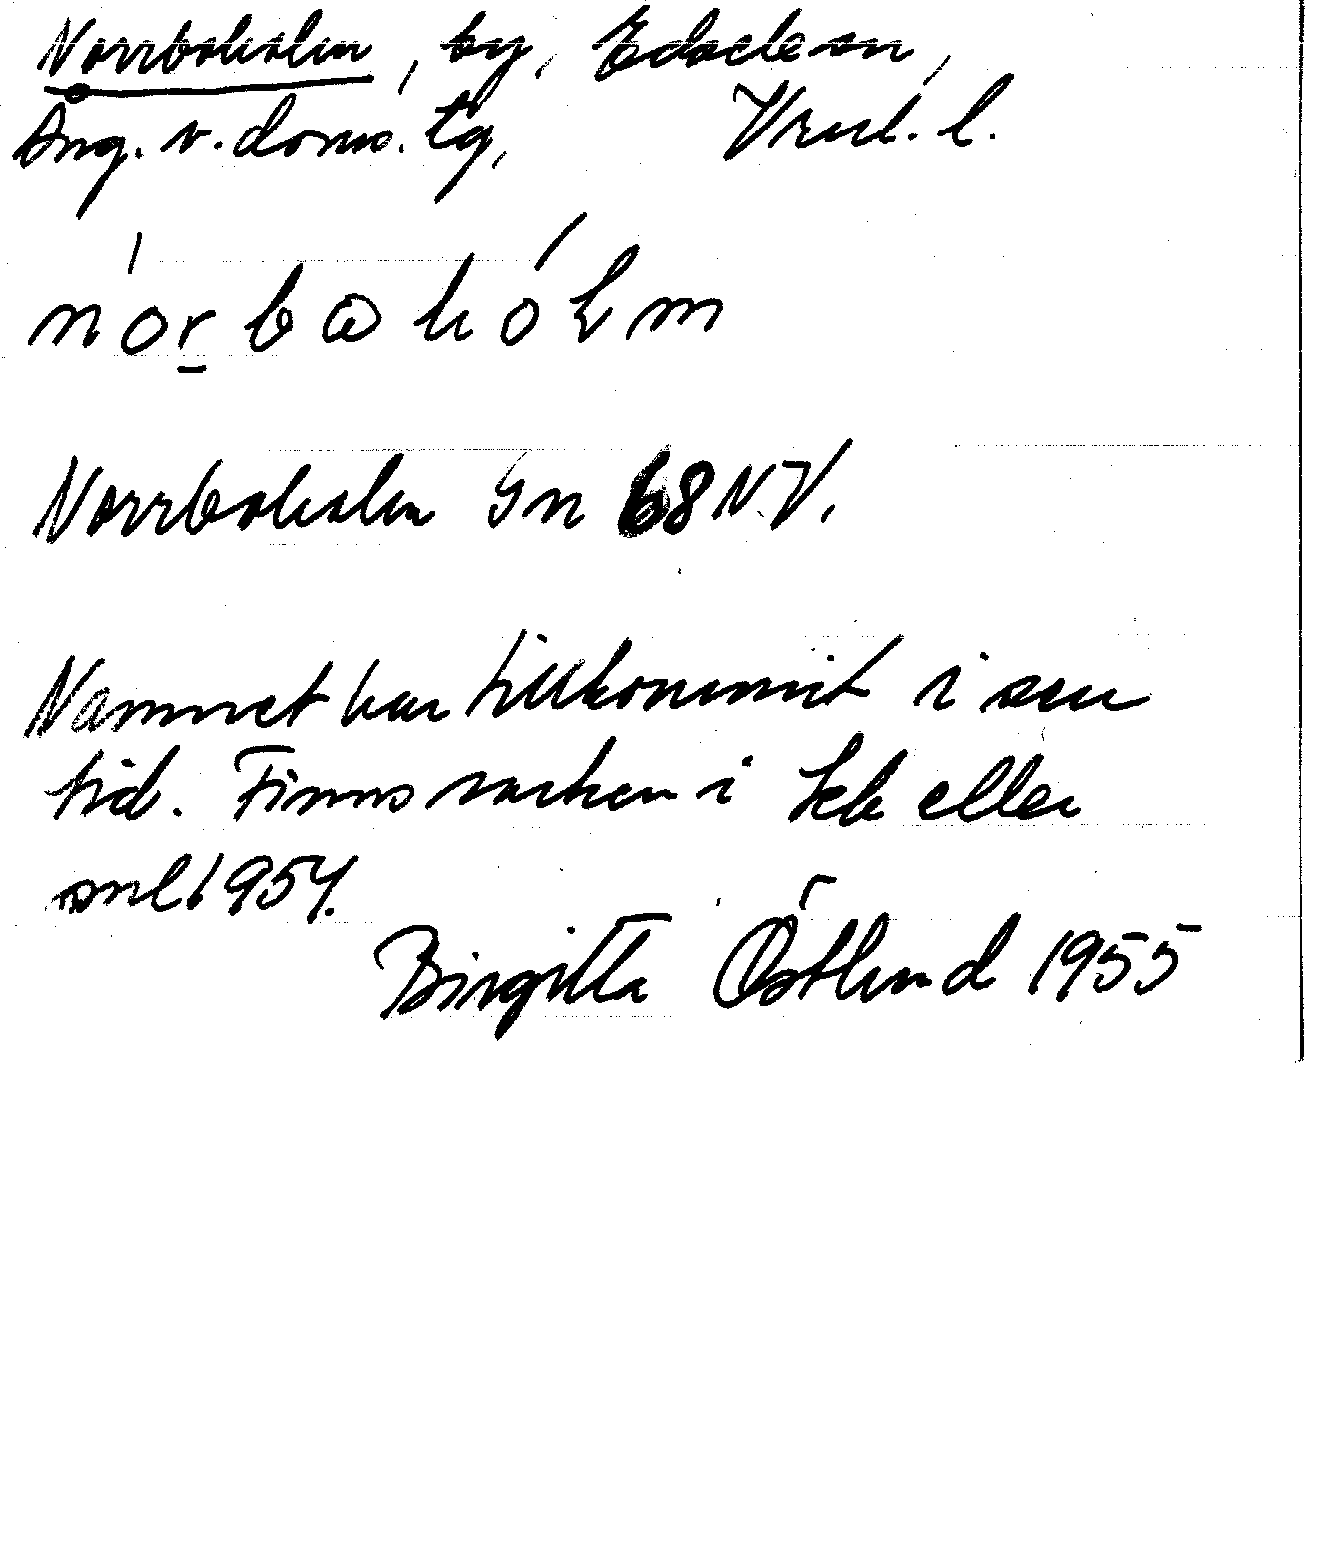 Norrboholm, by, Edebo sn,
Ång. v. doms. tg, Vrml. l.
nórbahólm
Norrboholm Gn 68 NV.
Namnet har tillkommit i sen
tid. Finns varken i Jeb eller
snl 1954.
Birgitta Östlund 1955